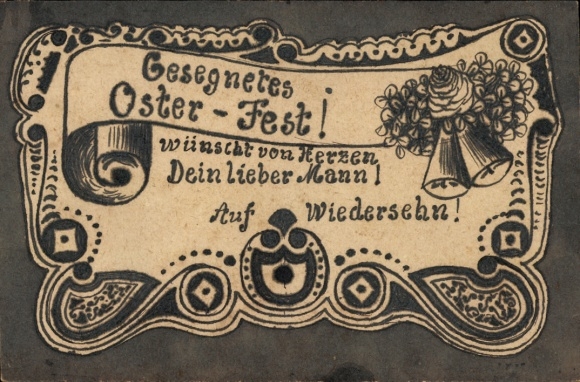 Gesegnetes
Oster-Fest!
wünscht von Herzen
Dein lieber Mann!
Auf Wiedersehn!